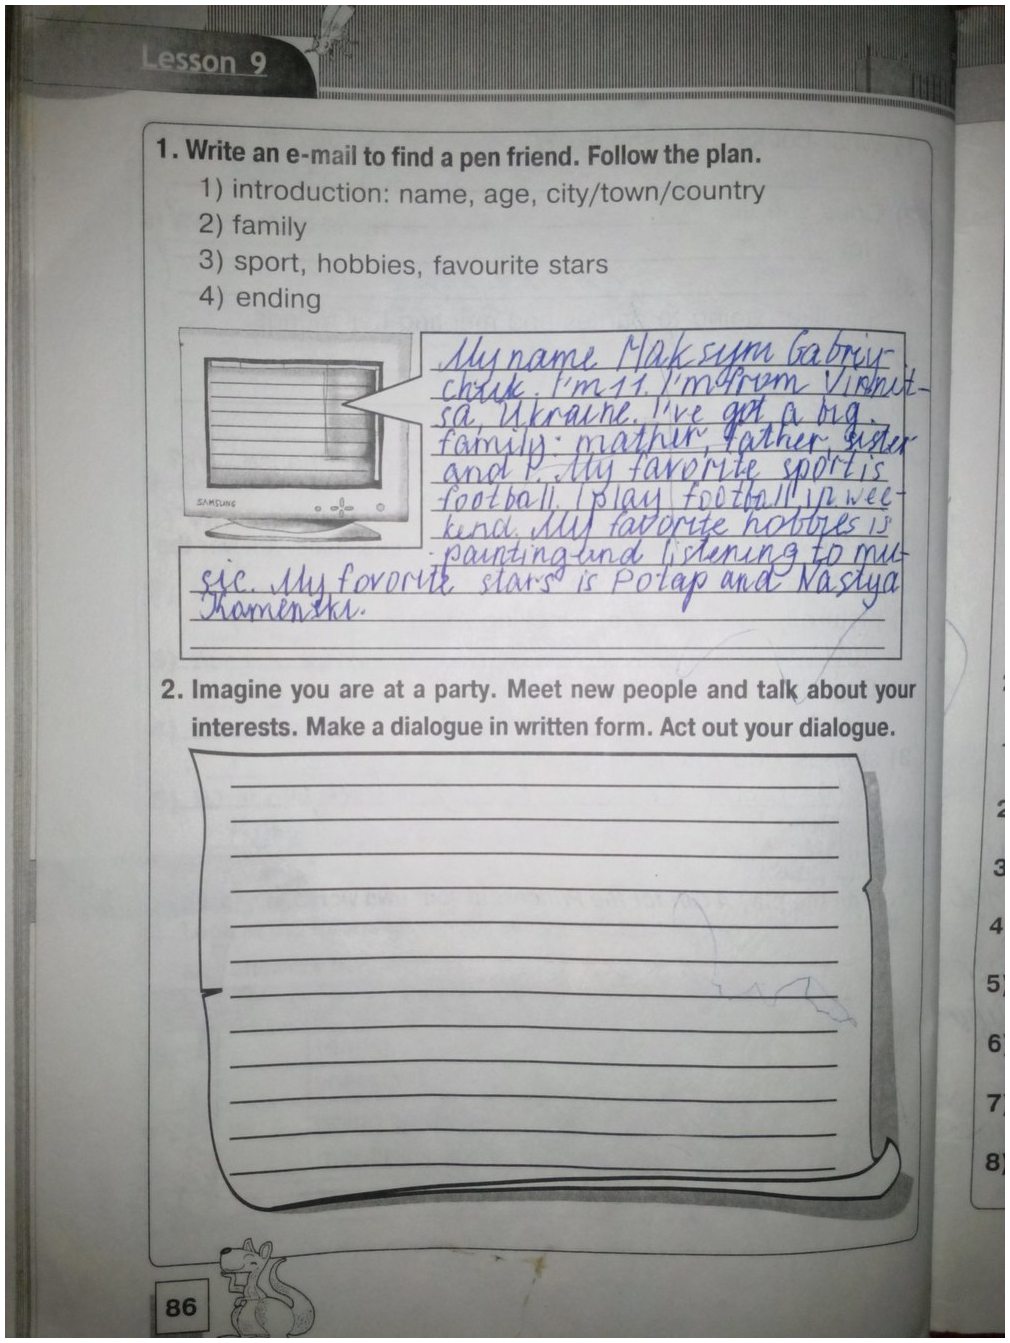 Lesson 9
1. Write an e-mail to find a pen friend. Follow the plan.
1) introduction: name, age, city/town/country
2) family
3) sport, hobbies, favourite stars
4) ending
My name Maksym Gabriy-
chuk. I'm 11. I'm from Vinnit-
sa, Ukraine. I've got a big
family: mather, father, sister
and I. My favorite sport is
football. I play football in wee-
kend. My favorite hobbies is
painting and listening to mu-
sic. My fovorite stars is Potap and Nastya
Kamenski.
SAMSUNG
2. Imagine you are at a party. Meet new people and talk about your
interests. Make a dialogue in written form. Act out your dialogue.
86
2
3
4
5)
6)
7)
8)